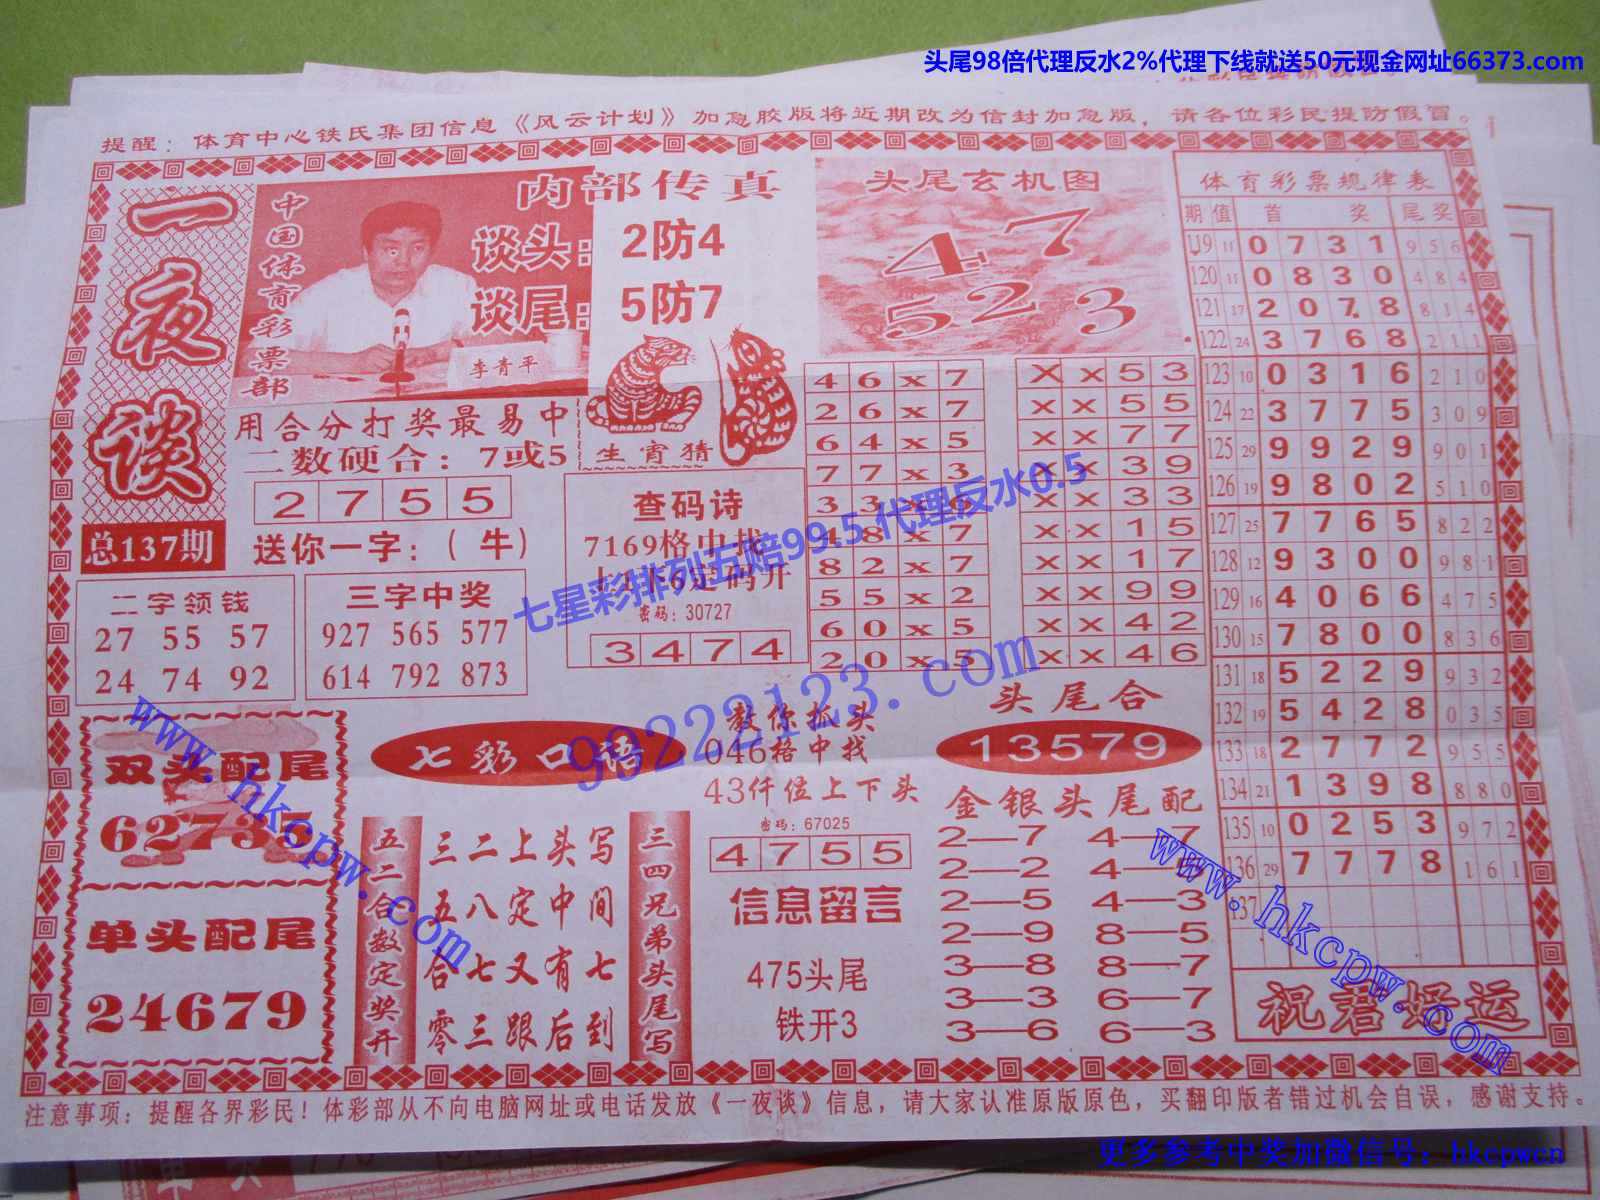 头尾98倍代理反水2%代理下线就送50元现金网址66373.com
提醒：体育中心铁氏集团信息《风云计划》加急胶版将近期改为信封加急版，请各位彩民提防假冒。
一夜谈
总137期
中国体育彩票部
内部传真
谈头：2防4
谈尾：5防7
李青平
用合分打奖最易中
二数硬合：7或5
2 7 5 5
送你一字：（牛）
生宵猜
头尾玄机图
4 7
5 2 3
体育彩票规律表
期 值 首 奖 尾 奖
119 11 0 7 3 1 9 5 6
120 11 0 8 3 0 4 8 4
121 17 2 0 7 8 8 1 4
122 24 3 7 6 8 2 1 1
123 10 0 3 1 6 2 1 0
124 22 3 7 7 5 3 0 9
125 29 9 9 2 9 9 0 1
126 19 9 8 0 2 5 1 0
127 25 7 7 6 5 8 2 2
128 12 9 3 0 0 9 8 1
129 16 4 0 6 6 4 7 5
130 15 7 8 0 0 8 3 6
131 18 5 2 2 9 9 3 2
132 19 5 4 2 8 0 3 5
133 18 2 7 7 2 9 5 9
134 21 1 3 9 8 8 8 0
135 10 0 2 5 3 9 7 2
136 29 7 7 7 8 1 6 1
137
祝君好运
4 6 x 7
2 6 x 7
6 4 x 5
7 7 x 3
3 3 x 6
4 8 x 7
8 2 x 7
5 5 x 2
6 0 x 5
2 0 x 5
X x 5 3
x x 5 5
x x 7 7
x x 3 9
x x 3 3
x x 1 5
x x 1 7
x x 9 9
x x 4 2
x x 4 6
查码诗
7169格中找
定码开
密码：30727
3 4 7 4
二字领钱
27 55 57
24 74 92
三字中奖
927 565 577
614 792 873
七星彩排列五赔99.5 代理反水0.5
99222123.com
www.hkcpw.com
双头配尾
62735
单头配尾
24679
七彩口语
五二合数定奖开
三二上头写
五八定中间
合七又有七
零三跟后到
三四兄弟头尾写
教你抓头
046格中找
43仟位上下头
密码：67025
4 7 5 5
信息留言
475头尾
铁开3
头尾合
13579
金银头尾配
2—7 4—7
2—2 4—5
2—5 4—3
2—9 8—5
3—8 8—7
3—3 6—7
3—6 6—3
www.hkcpw.com
注意事项：提醒各界彩民！体彩部从不向电脑网址或电话发放《一夜谈》信息，请大家认准原版原色，买翻印版者错过机会自误，感谢支持。
更多参考中奖加微信号：hkcpwcn